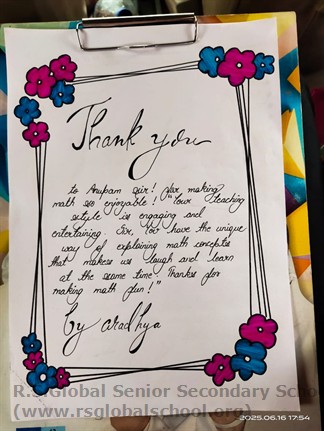 Thank you
to Anupam sir! for making
math so enjoyable! "Your teaching
style is engaging and
entertaining. Sir, You have the unique
way of explaining math concepts
that makes us laugh and learn
at the same time. Thanks for
making math fun!"
by aradhya
R.S. Global Senior Secondary Scho
(www.rsglobalschool.org)
2025.06.16 17:54